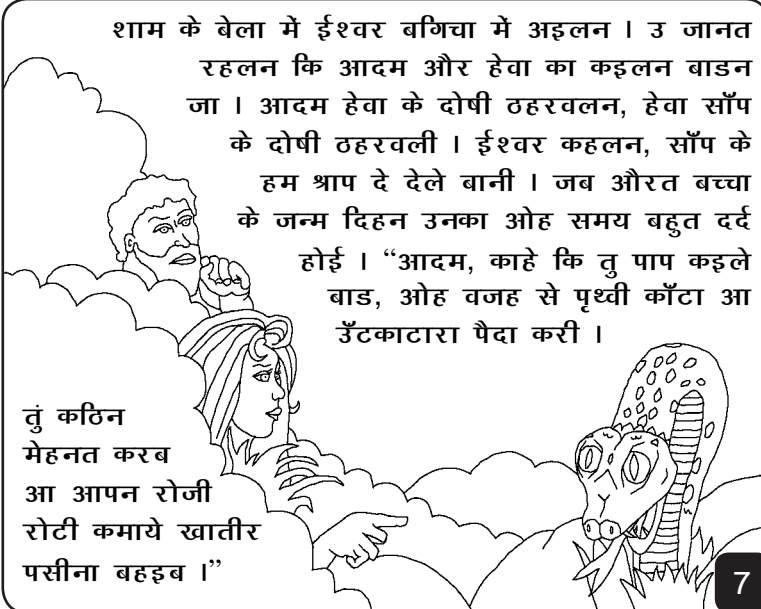 शाम के बेला में ईश्वर बगिचा में अइलन । उ जानत
रहलन कि आदम और हेवा का कइलन बाडन
जा । आदम हेवा के दोषी ठहरवलन, हेवा सॉंप
के दोषी ठहरवली । ईश्वर कहलन, सॉंप के
हम श्राप दे देले बानी । जब औरत बच्चा
के जन्म दिहन उनका ओह समय बहुत दर्द
होई । “आदम, काहे कि तु पाप कइले
बाड, ओह वजह से पृथ्वी कॉंटा आ
उँटकाटारा पैदा करी ।
तुं कठिन
मेहनत करब
आ आपन रोजी
रोटी कमाये खातीर
पसीना बहइब ।”
7